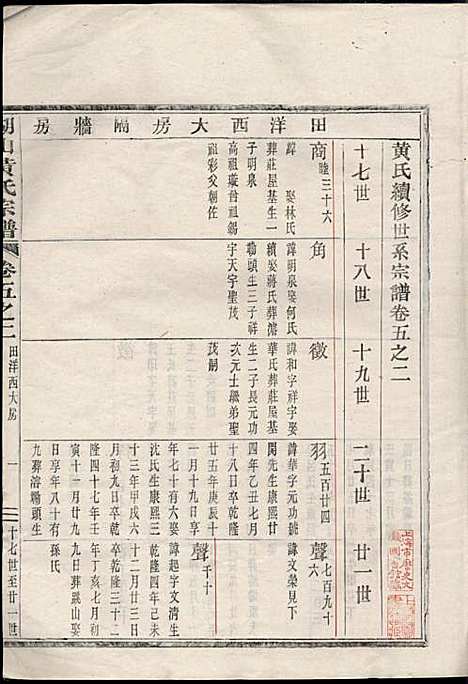 黃氏續修世系宗譜卷五之二
十七世
十八世
十九世
二十世
廿一世
田洋西大房隔牆房
商 睦三十六
諱 娶林氏
葬莊屋基生一
子明泉
高祖璇曾祖錫
祖彩父朝任
角
諱明泉娶何氏
續娶蔣氏葬澹
勘頭生三子祥
宇天宇聖茂
徵
諱和字祥宇娶
華氏葬莊屋基
生二子長元功
次元士繼弟聖
茂嗣
羽 五百廿四
諱華字元功娶
閔先生康熙廿
四年乙丑七月
十八日卒乾隆
廿五年庚辰十
一月十九日享
年七十有六娶
沈氏生康熙三
十三年甲戌六
月初九日卒乾
隆四十七年壬
寅十一月廿九
日享年八十有
九葬溶勘頭生
聲 七百九十六
諱文榮見下
聲 千十
諱起字文清生
乾隆四年己未
十二月廿三日
卒乾隆三十二
年丁亥七月初
九日葬戚山娶
孫氏
黃氏宗譜
卷五之二
田洋西大房
一
十七世至廿一世